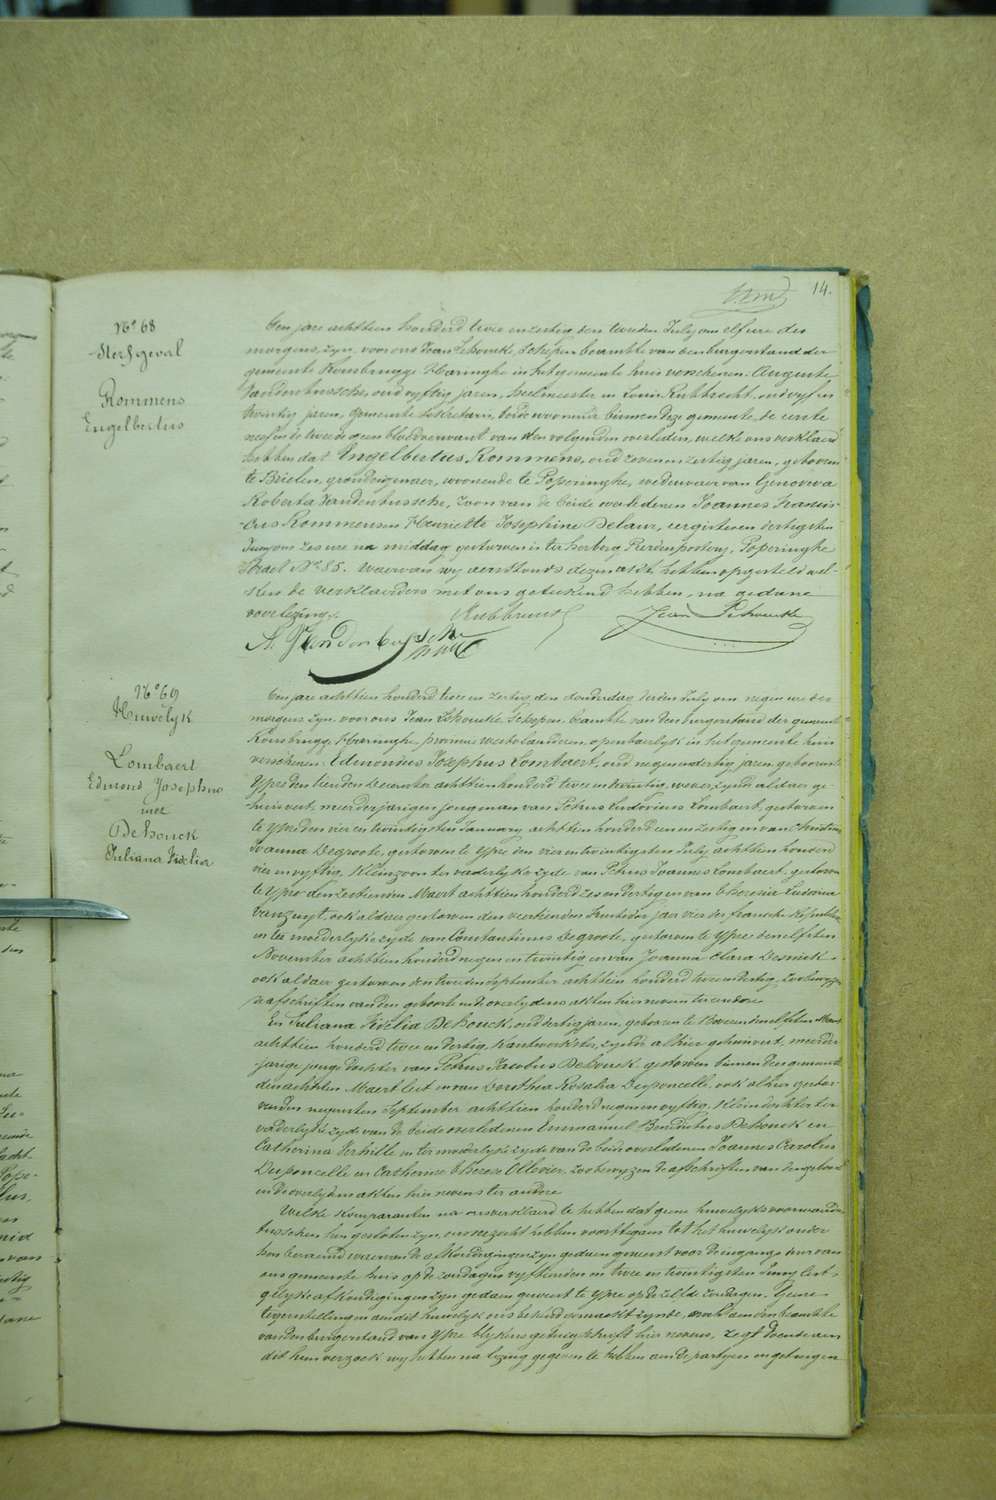 14.
N° 68
Sterfgeval
Rommens
Engelbertus
Een jare achttien honderd twee en zestig den tweeden July om elf ure des
morgens, zyn voor ons Jean Dehoucke, Schepen beambte van den burgerstand der
gemeente Roesbrugge-Haringhe in het gemeente huis verschenen Auguste
Vandenbussche, oud vyftig jaren, heelmeester en Louis Rubbrecht, oud vyf en
twintig jaren, gemeente Sekretaris, beide woonende binnen deze gemeente, de eerste
neef en de tweede geen bloedverwant van den volgenden overleden, welke ons verklaerd
hebben dat Engelbertus Rommens, oud zeven en zestig jaren, geboren
te Brielen, grondeigenaer, woonende te Poperinghe, weduwaer van Genoveva
Roberta Vandenbussche, zoon van de beide overledenen Joannes Francis-
cus Rommens en Henriette Josephine Delaur, eergisteren dertigsten
Juny om zes ure na middag gestorven is ter herberg Peerdenpostery, Poperinghe
Straet N° 85. Waervan wy aenstonds dezen akt hebben opgesteld wel-
ken de verklaerders met ons geteekend hebben, na gedane
voorlezing.
Rubbrecht Jean Dehoucke
A. Vandenbussche
N° 69
Huwelyk
Lombaert
Edmond Josephus
met
Dehouck
Juliana Rosalia
Een jare achttien honderd twee en zestig, den donderdag derden July om negen ure des
morgens zyn voor ons Jean Dehoucke, Schepen beambte van den burgerstand der gemeente
Roesbrugge-Haringhe, provincie Westvlaenderen, openbaerlyk in het gemeente huis
verschenen: Edmondus Josephus Lombaert, oud negenendertig jaren geboren te
Ypre den tienden December achttien honderd twee en twintig, wever, zynde aldaer ge-
huisvest, meerderjarigen jongman van Petrus Ludovicus Lombaert, gestorven
te Ypre den vier en twintigsten January achttien honderd een en zestig en van Christina
Joanna Degroote, gestorven te Ypre den vier en twintigsten July achttien honderd
vier en vyftig. Kleinzoon ter vaderlyke zyde van Petrus Joannes Lombaert, gestorven
te Ypre den zestienden Maert achttien honderd zes en dertig en van Theresia Ludovica
Vanzuyt, ook aldaer gestorven den veertienden jaer vier der fransche Republiek
en ter moederlyke zyde van Constantinus Degroote, gestorven te Ypre den elfsten
November achttien honderd negen en twintig en van Joanna Clara
ook aldaer gestorven den tweeden September achttien honderd twee en dertig, zoo bewyzen
de afschriften van den geboorte en de overlydens akten hier nevens ter andere
En Juliana Rosalia Dehouck, oud dertig jaren, geboren te den elfsten Maert
achttien honderd twee en dertig, kantwerkster, zynde alhier gehuisvest, meerder-
jarige jonge dochter van Petrus Jacobus Dehouck, gestorven binnen deze gemeente
den achtsten Maert lest en van Dorothea Rosalia Desponcelle, ook alhier gestor-
ven den negensten September achttien honderd negen en vyftig. Kleindochter ter
vaderlyke zyde van de beide overledenen Emmanuel Benedictus Dehouck en
Catherina Verhille en ter moederlyke zyde van de beide overledenen Joannes Carolus
Desponcelle en Catherine Therese Ollivier, zoo bewyzen de afschriften van den geboorte
en de overlydens akten hier nevens ter andere
Welke komparanten na ons verklaerd te hebben dat geene huwelyks voorwaerden
tusschen hen gesloten zyn, ons verzocht hebben voorttegaen tot het huwelyk onder
hen beraemd waervan de afkondigingen zyn gedaen geweest voor de ingangs deur van
ons gemeente huis op de zondagen vyftienden en twee en twintigsten Juny lest,
gelyke afkondigingen zyn gedaen geweest te Ypre op de zelfde zondagen. Geene
tegenstelling aen dit huwelyk ons bekend gemaekt zynde, noch aen den beambte
van den burgerstand van Ypre blykens getuigschrift hier nevens, regt doende aen
dit hun verzoek wy hebben na lezing gegeven te hebben aen de partyen en getuigen